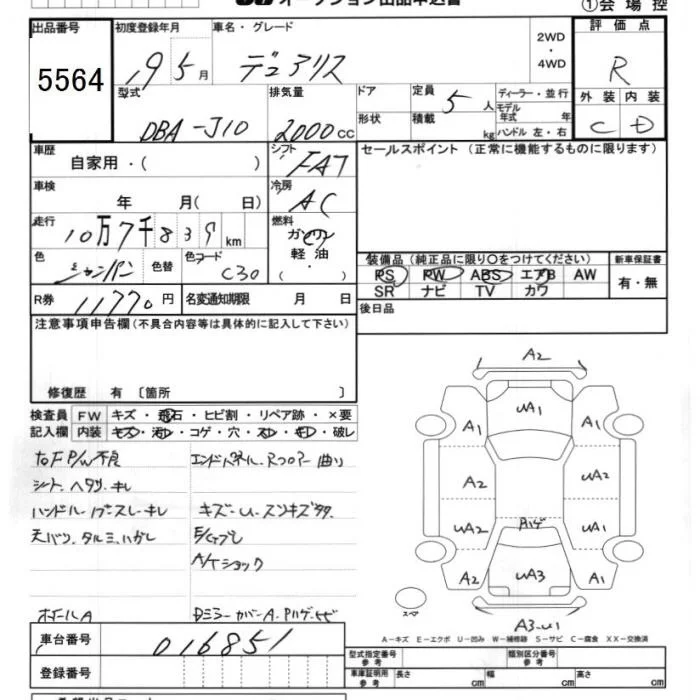 オークション出品申込書
①会場控
出品番号 初度登録年月 車名・グレード 2WD・4WD 評価点
5564 19 5月 デュアリス R
型式 排気量 ドア 定員 5人 ディーラー・並行 外装 内装
DBA-J10 2000cc 形状 積載 kg モデル年式 年 ハンドル 左・右 C D
車歴 シフト セールスポイント (正常に機能するものに限ります)
自家用・( ) FAT
車検 冷房
年 月( 日) AC
走行 燃料
10万7千839km ガソリン
軽油
・( )
色 色替 色コード 装備品 (純正品に限り○をつけてください) 新車保証書
シャンパン C30 PS PW ABS エアB AW 有・無
SR ナビ TV カワ
R券 11770円 名変通知期限 月 日 後日品
注意事項申告欄(不具合内容等は具体的に記入して下さい)
修復歴 有 〔箇所 〕
検査員 FW キズ・飛石・ヒビ割・リペア跡・×要
記入欄 内装 キズ・汚レ・コゲ・穴・スレ・キレ・破レ
右F P/W不良 エンドパネル.
シート.ヘタリ.キレ
ハンドル キズ-U.スリキズ多々
天バリ.タルミ.ハガレ
A/Tショック
ホイールA Dミラーカバー-A.Pハゲ.
A2
UA1
A1 A1
A2 UA2
UA2 Pハゲ UA1
A2 UA3 A1
スペア
A3-U1
A-キズ E-エクボ U-凹み W-補修跡 S-サビ C-腐食 XX-交換済
車台番号 016851 型式指定番号 参考 類別区分番号 参考
登録番号 車庫証明用 参考 長さ cm 幅 cm 高さ cm